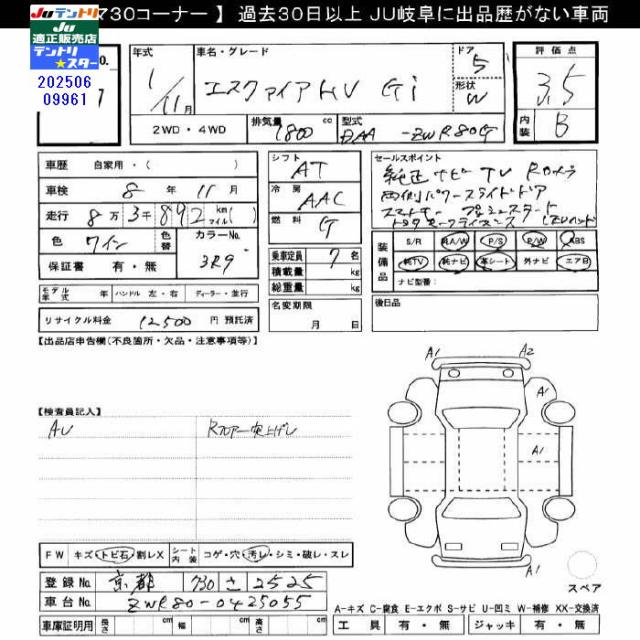 マ30コーナー 】 過去30日以上 JU岐阜に出品歴がない車両
JUテントリ
Ju
適正販売店
テントリ
★スター
202506
09961
年式
1/11月
車名・グレード
エスクァイア HV Gi
ドア
5
形状
W
評価点
3.5
内装
B
2WD・4WD
排気量
1800 cc
型式
DAA -ZWR80G
車歴 自家用・( )
車検 8 年 11 月
走行 8万3千892 km マイル ( )
色 ワイン
色替
カラーNo.
3R9
保証書 有・無
シフト
AT
冷房
AAC
燃料
G
乗車定員 7 名
積載量 kg
総重量 kg
セールスポイント
純正ナビ TV Rカメラ
両側パワースライドドア
スマートキー プッシュスタート
装備品
S/R 純A/W P/S P/W ABS
純TV 純ナビ 革シート 外ナビ エアB
ナビ型番:
モデル年式 年 ハンドル 左・右 ディーラー・並行
リサイクル料金 12500 円 預託済
名変期限
月 日
後日品
【出品店申告欄(不良箇所・欠品・注意事項等)】
【検査員記入】
AU
Rフロアー突上げし
A1
A2
A1
A1
A1
スペア
FW キズ・トビ石・割レX
シート内装
コゲ・穴・汚レ・シミ・破レ・スレ
登録No. 京都 730 さ 2525
車台No. ZWR80-0425055
車庫証明用 長さ cm 幅 cm 高さ cm
A−キズ C−腐食 E−エクボ S−サビ U−凹ミ W−補修 XX−交換済
工具 有・無 ジャッキ 有・無